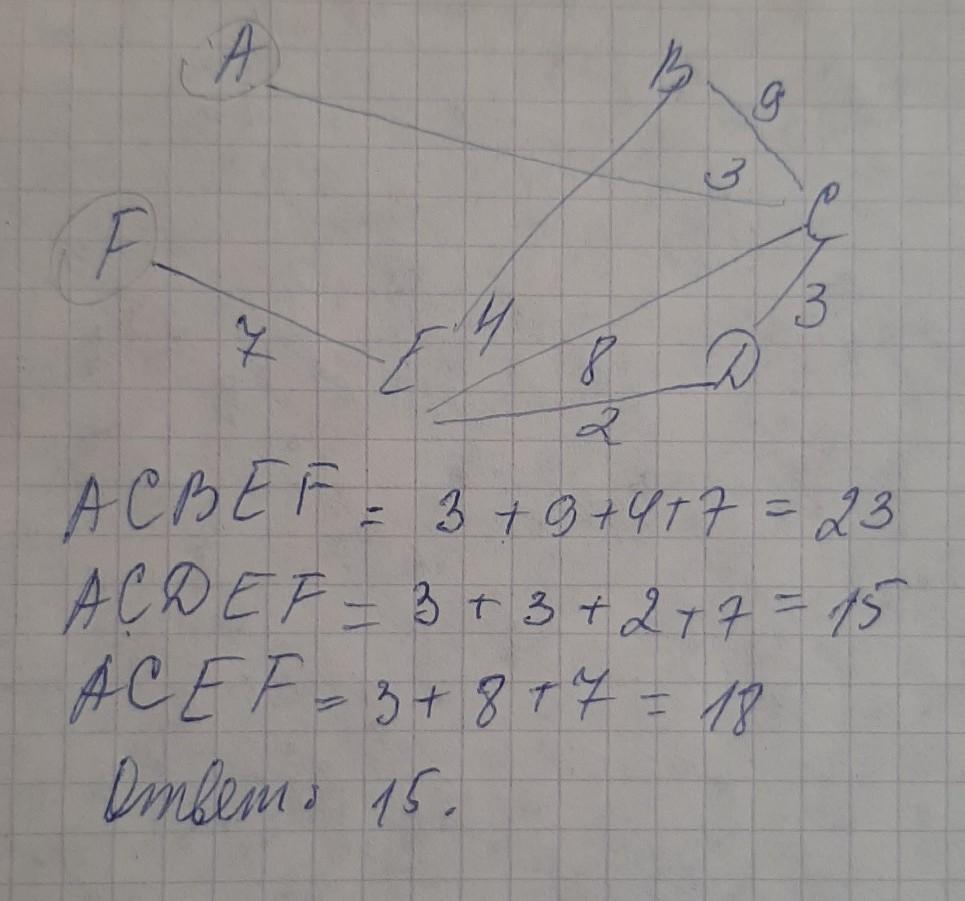 A
B
9
3
C
F
4
3
7
E
8
D
2
ACBEF = 3 + 9 + 4 + 7 = 23
ACDEF = 3 + 3 + 2 + 7 = 15
ACEF = 3 + 8 + 7 = 18
Ответ: 15.